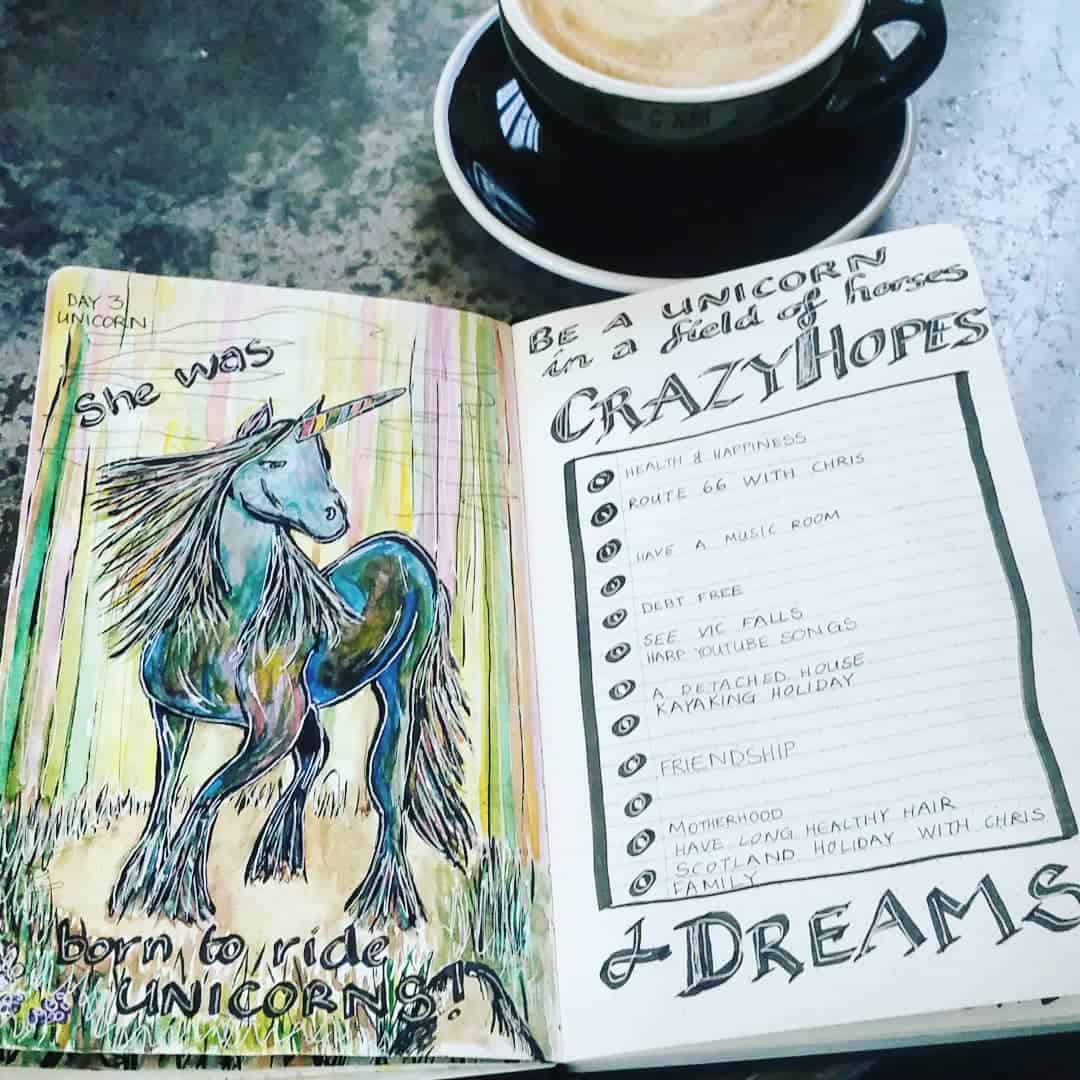 DAY 3
UNICORN
She was
born to ride
UNICORNS!
BE A UNICORN
in a field of horses
CRAZY HOPES
HEALTH & HAPPINESS
ROUTE 66 WITH CHRIS
HAVE A MUSIC ROOM
DEBT FREE
SEE VIC FALLS
HARP YOUTUBE SONGS
A DETACHED HOUSE
KAYAKING HOLIDAY
FRIENDSHIP
MOTHERHOOD
HAVE LONG HEALTHY HAIR
SCOTLAND HOLIDAY WITH CHRIS
FAMILY
& DREAMS